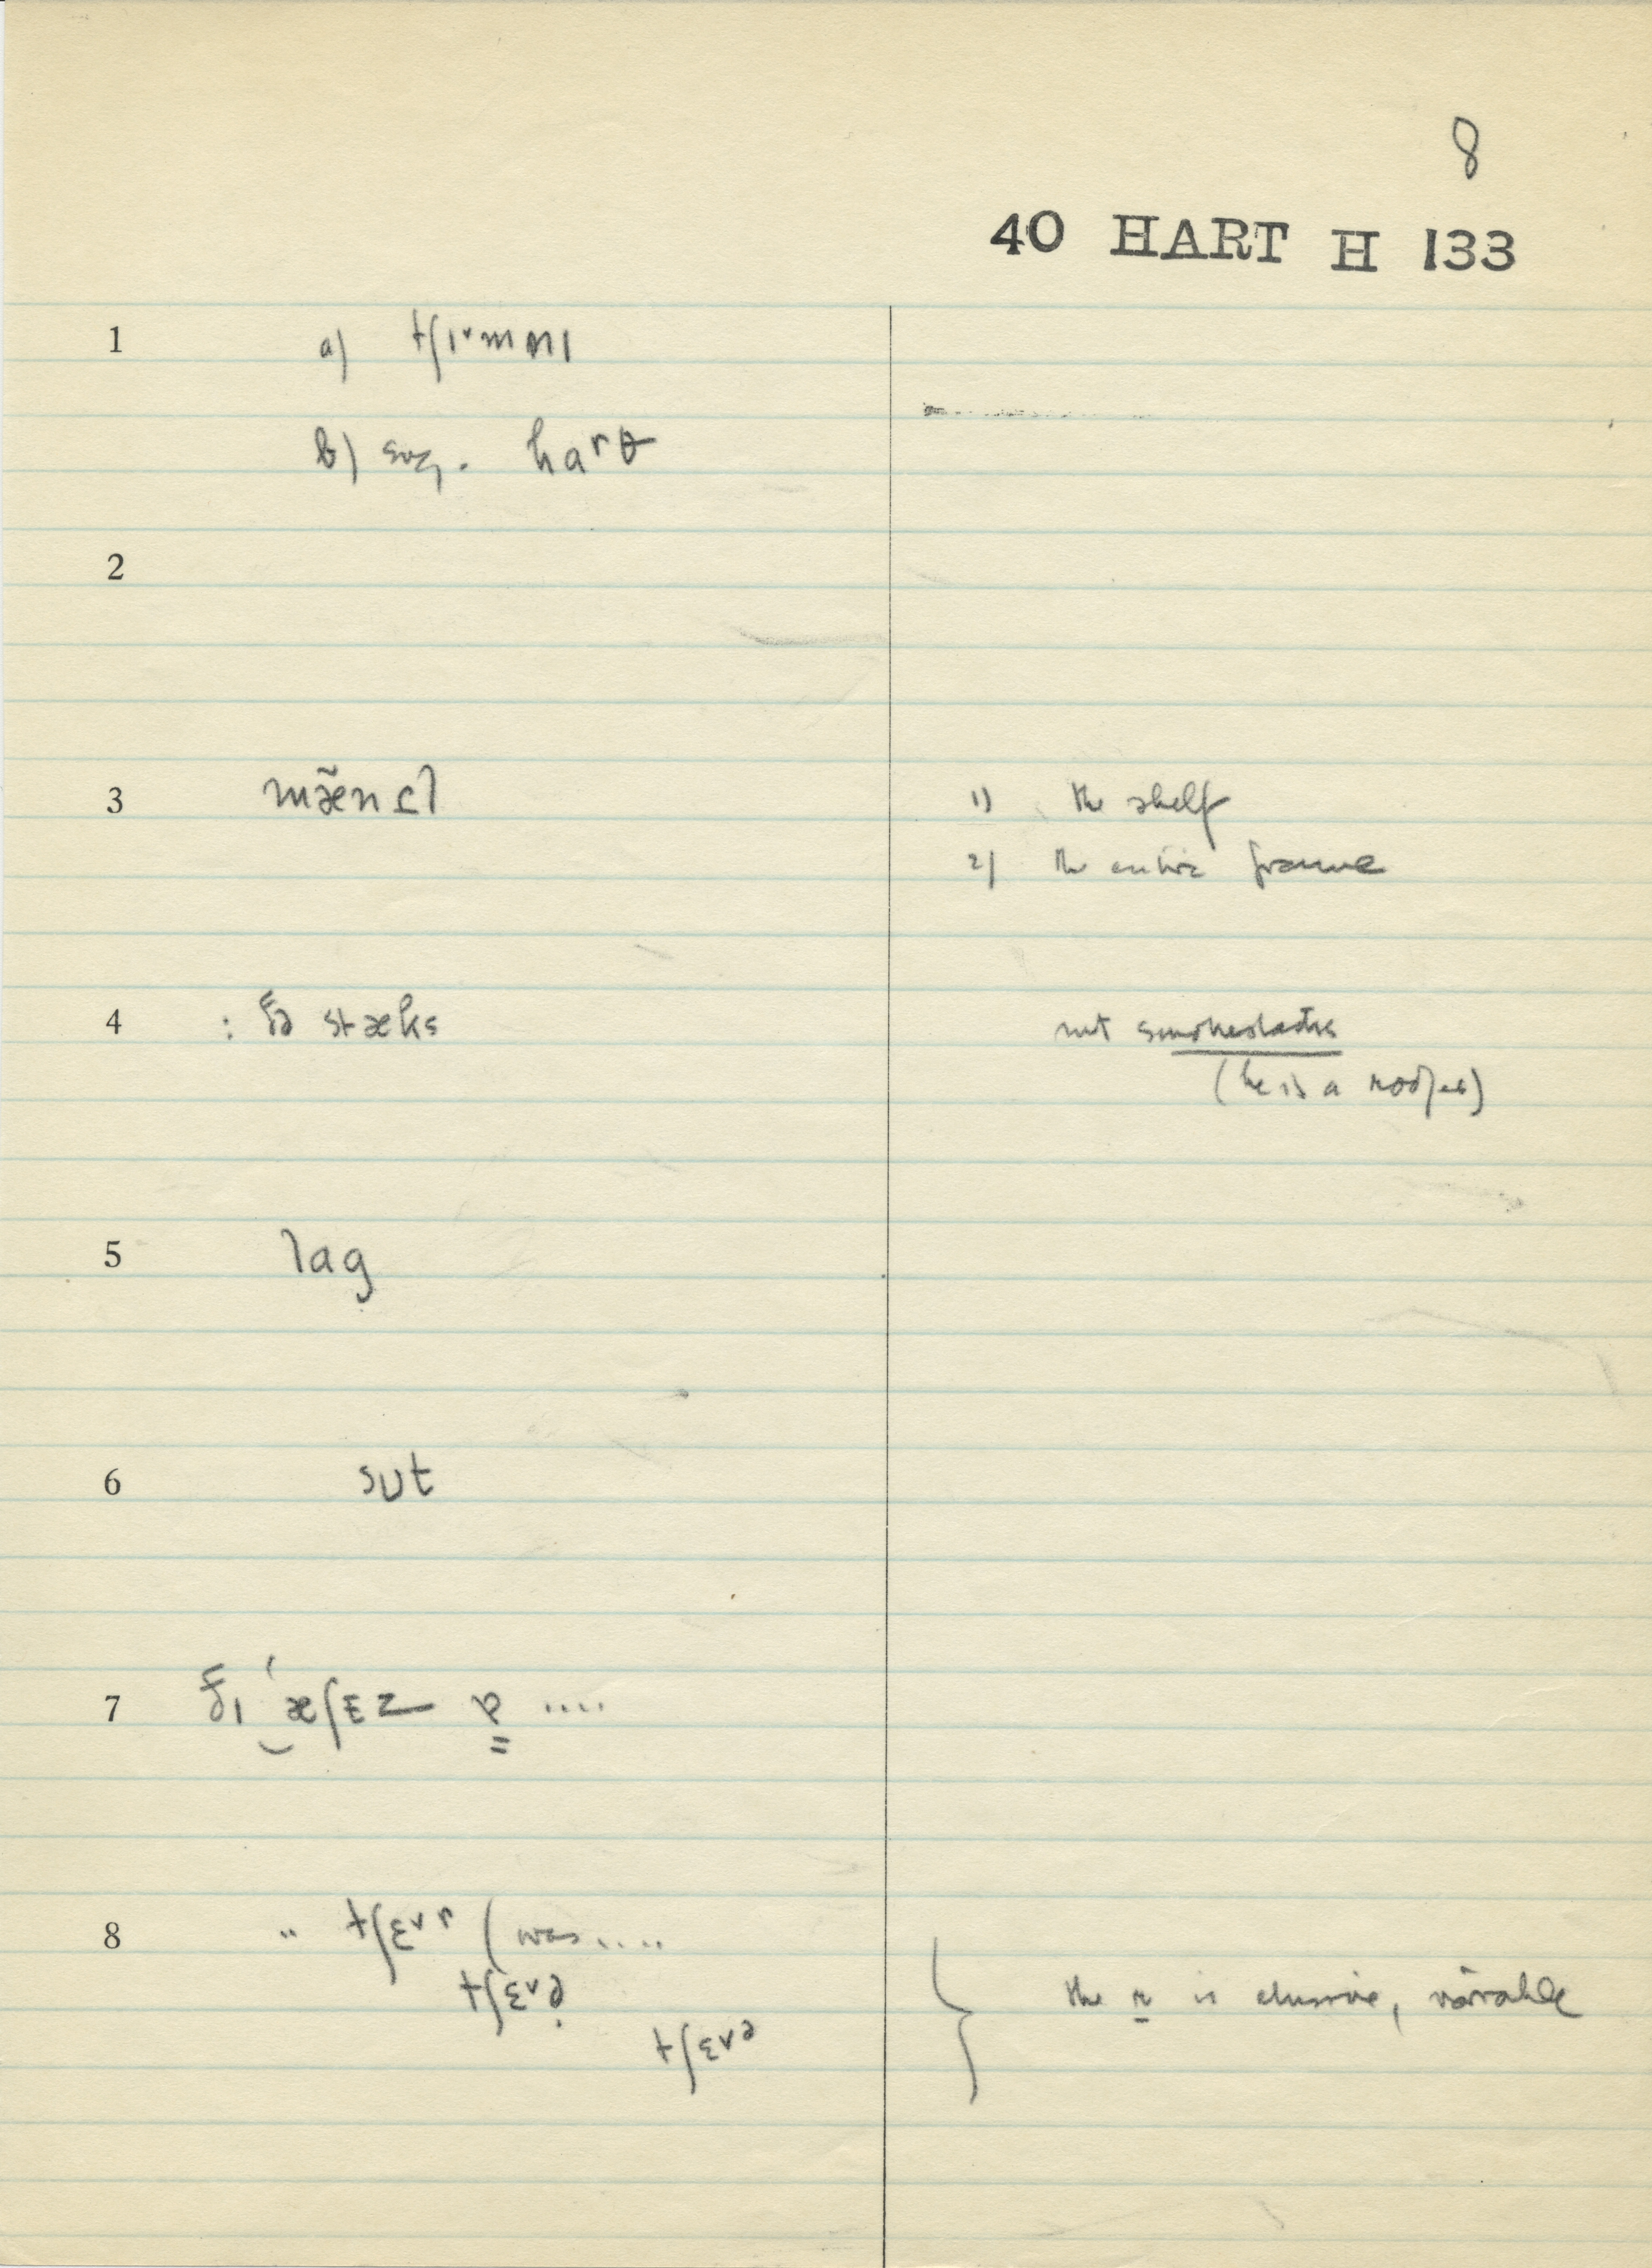 8
40 HART H 133
1 a) tʃɪᵛmnɪ
b) sug. haʳθ
2
3 mæ̃nɛl 1) the shelf
2) the entire frame
4 : ðə stæks not smokestacks
(he is a roofer)
5 lag
6 sʊt
7 ðɪ ‿'æʃɛz ....
8 .. tʃɛᵛʳ ( was ....
tʃɛᵛə̣
tʃɛᵛᵊ } the r is elusive, variable